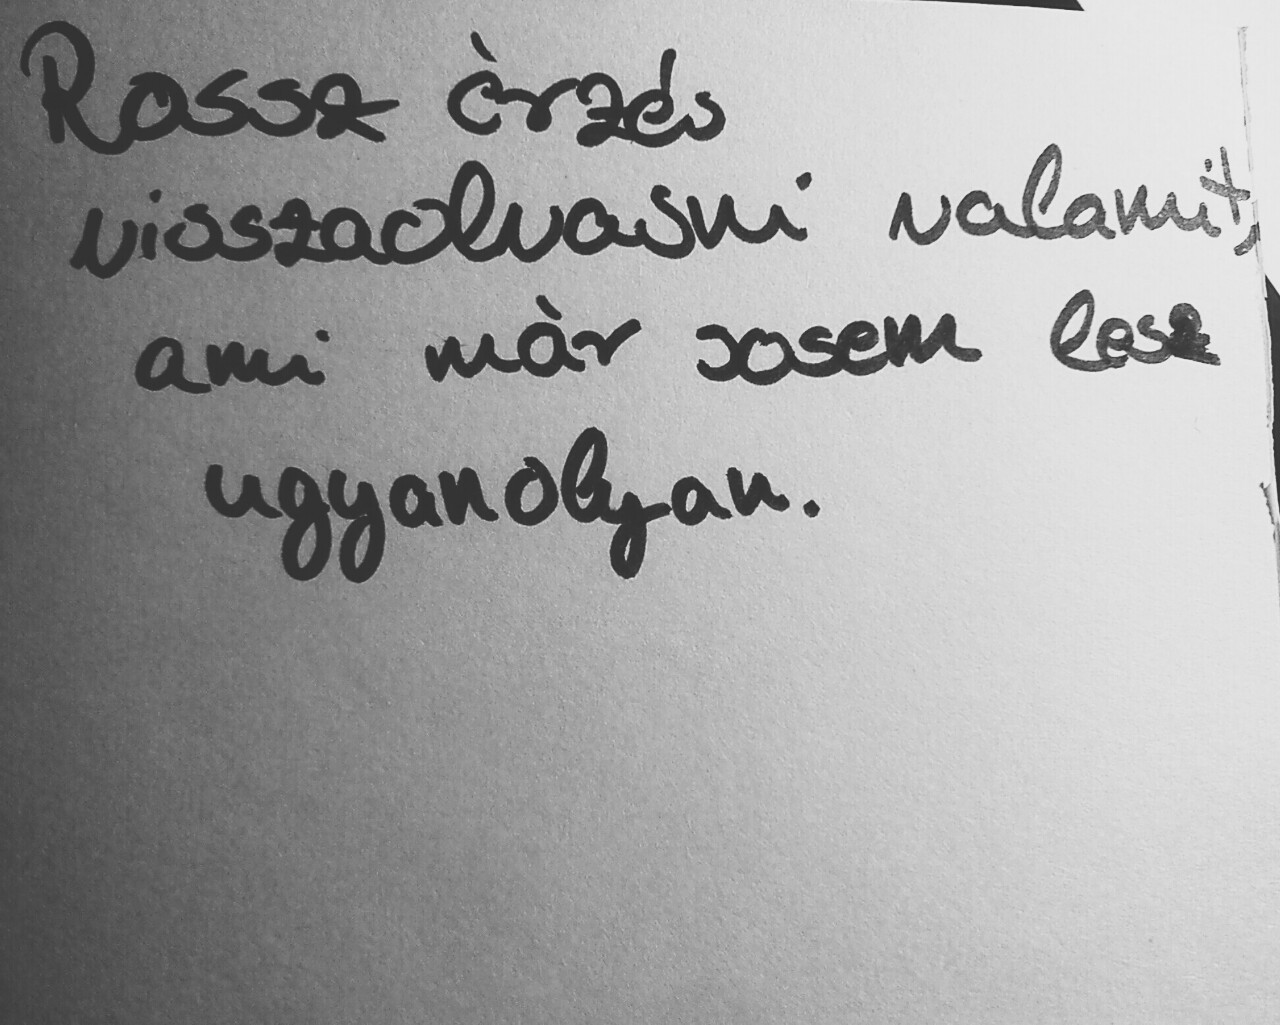 Rossz èrzés
visszaolvasni valamit,
ami màr sosem lesz
ugyanolyan.